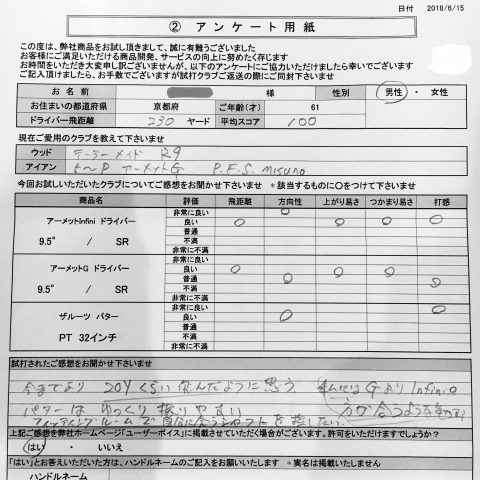 日付 2018/6/15
② アンケート用紙
この度は、弊社商品をお試し頂きまして、誠に有難うございました
お客様にご満足いただける商品開発、サービスの向上に努めたく存じます
お時間をいただき大変申し訳ございませんが、以下のアンケートにご協力いただけましたら幸いでございます
ご記入頂けましたら、お手数でございますが試打クラブご返送の際にご同封下さいませ
お名前 様 性別 男性 ・ 女性
お住まいの都道府県 京都府 ご年齢(才) 61
ドライバー飛距離 230 ヤード 平均スコア 100
現在ご愛用のクラブを教えて下さいませ
ウッド テーラーメイド R9
アイアン 5〜P アーメットG P.F.S. Misuno
今回お試しいただいたクラブについてご感想をお聞かせ下さいませ *該当するものに〇をつけて下さいませ
商品名 評価 飛距離 方向性 上がり易さ つかまり易さ 打感
アーメットInfini ドライバー
9.5° / SR
非常に良い
良い
普通
不満
非常に不満
アーメットG ドライバー
9.5° / SR
非常に良い
良い
普通
不満
非常に不満
ザルーツ パター
PT 32インチ
非常に良い
良い
普通
不満
非常に不満
試打されたご感想をお聞かせ下さいませ
今までより 20Yくらい飛んだように思う 私にはGよりInfiniの
パターは ゆっくり振りやすい 方が合うような
フィッティングルームで シャフトを
上記ご感想を弊社ホームページ「ユーザーボイス」に掲載させていただく場合がございます。許可をいただけますでしょうか?
はい ・ いいえ
「はい」とお答えいただいた方は、ハンドルネームのご記入をお願いします *実名は掲載いたしません
ハンドルネーム